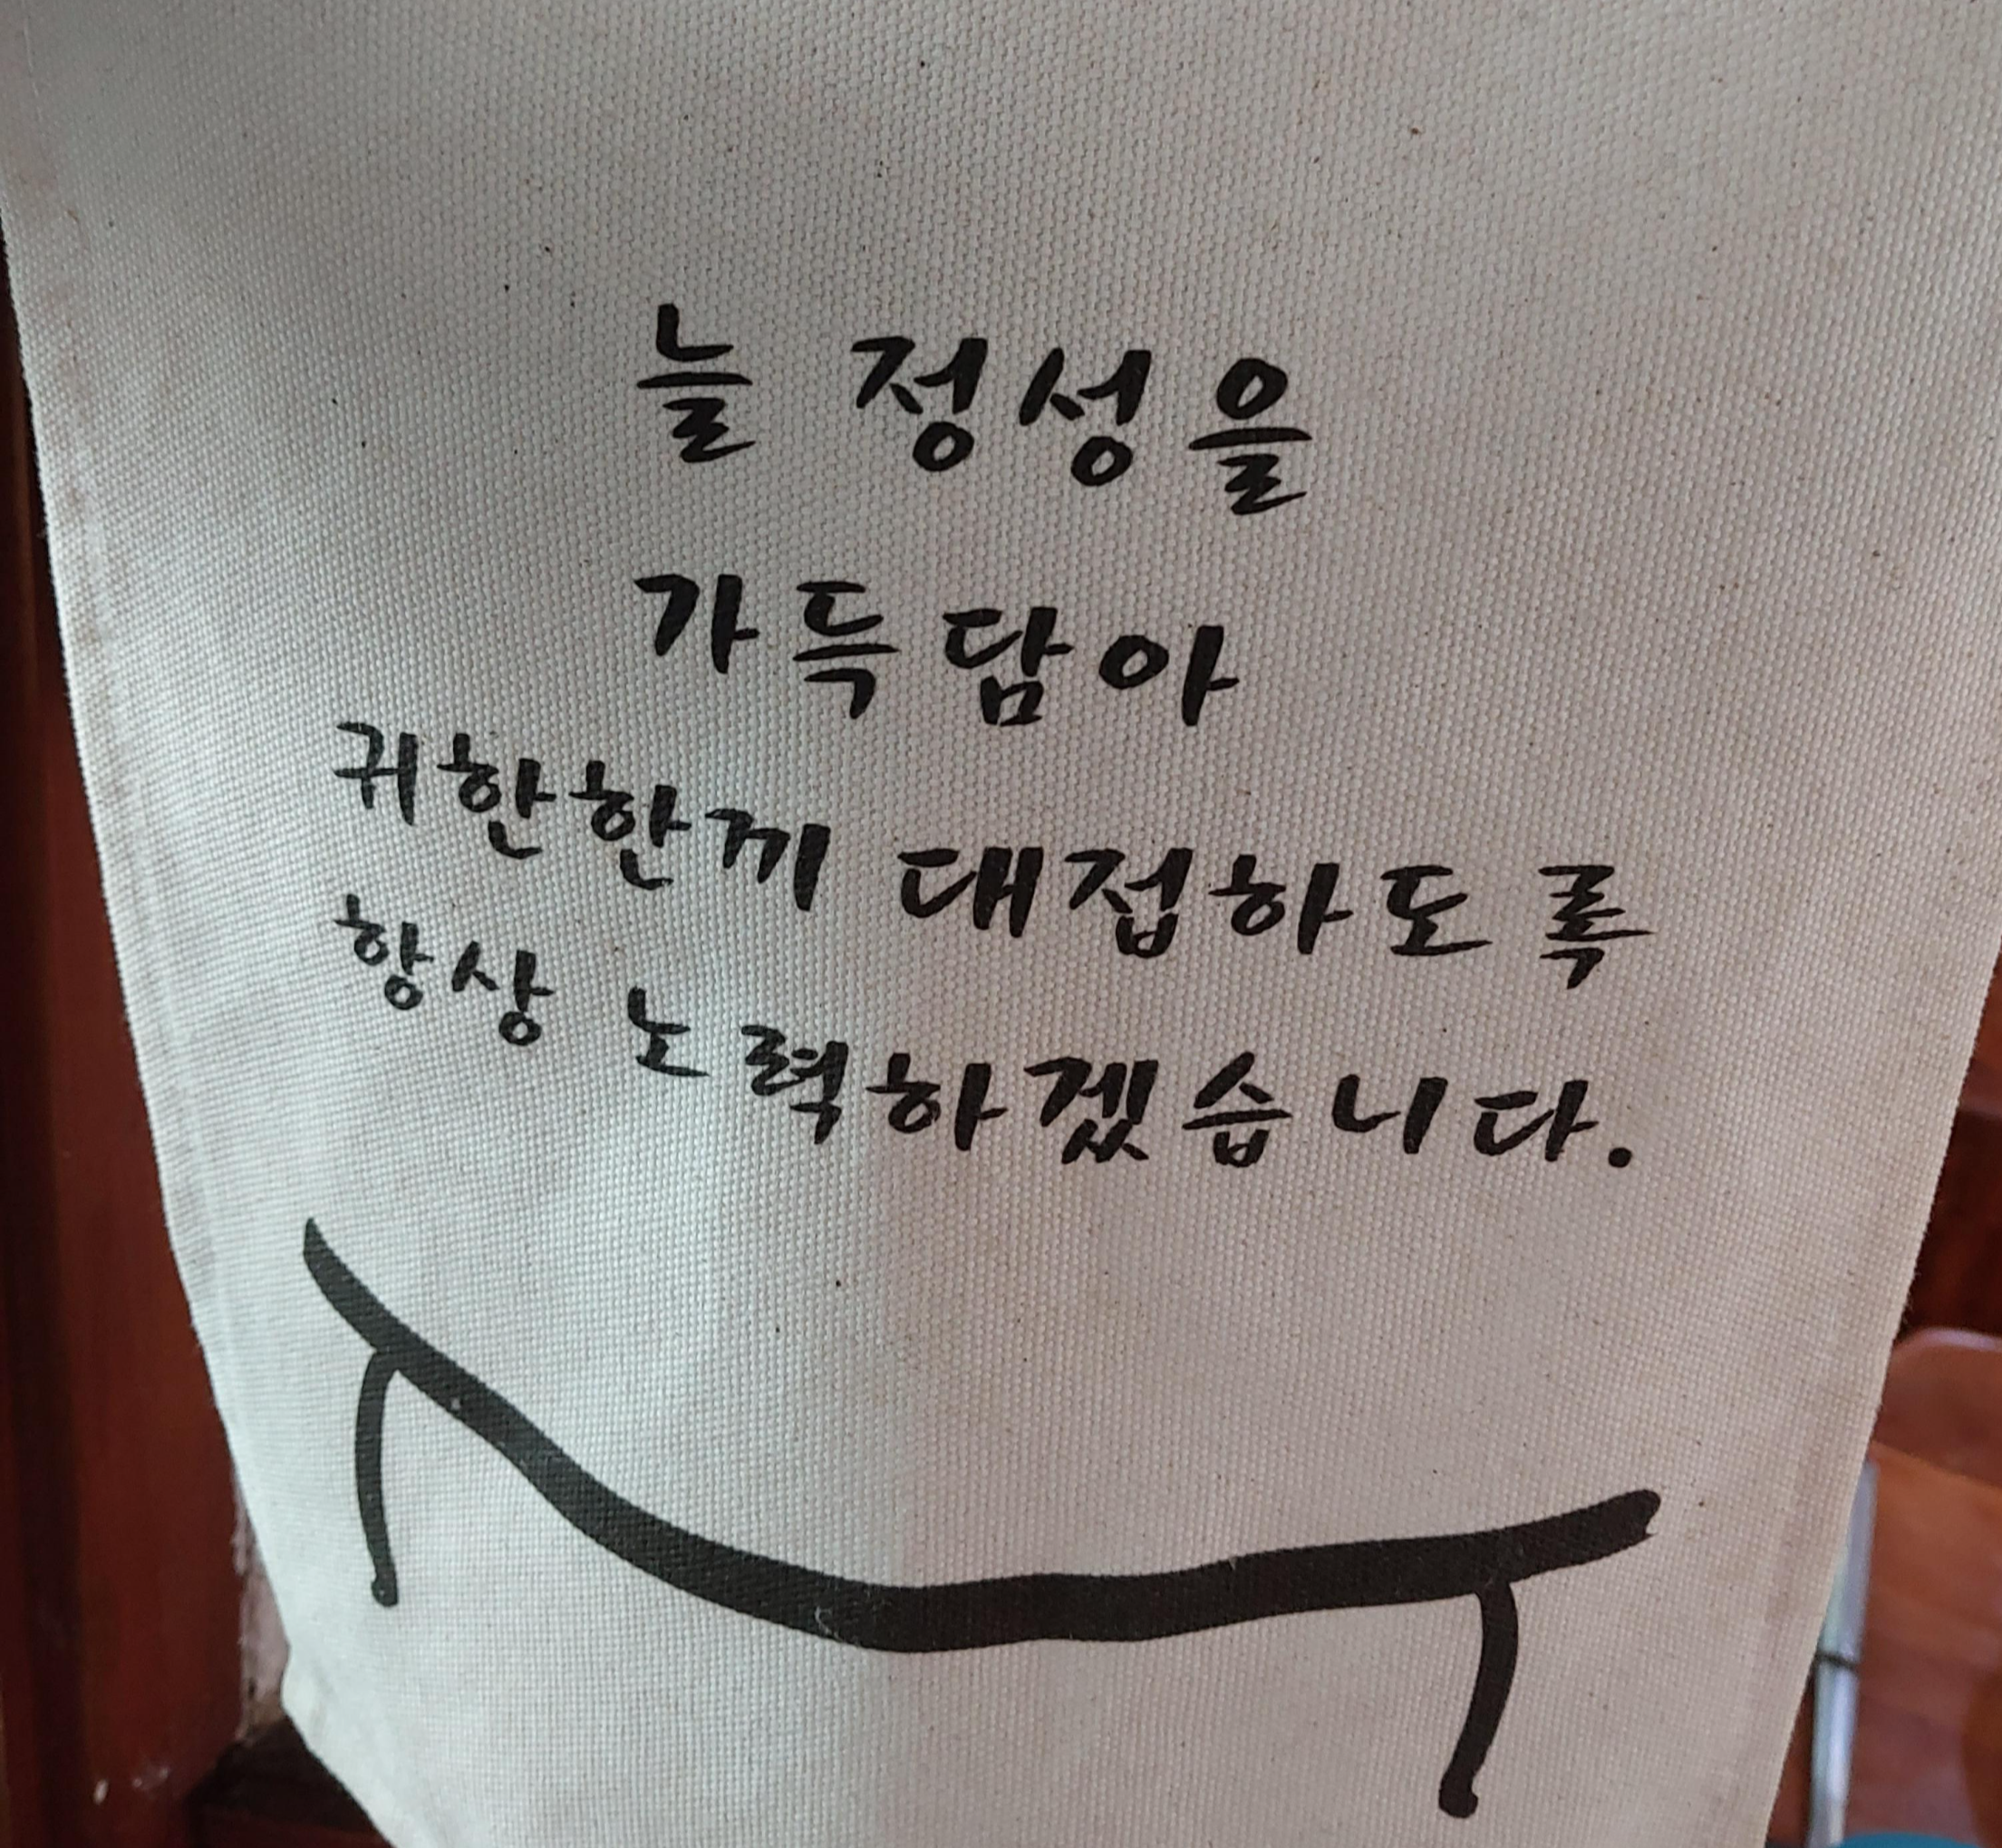 늘 정성을
가득담아
귀한한끼 대접하도록
항상 노력하겠습니다.